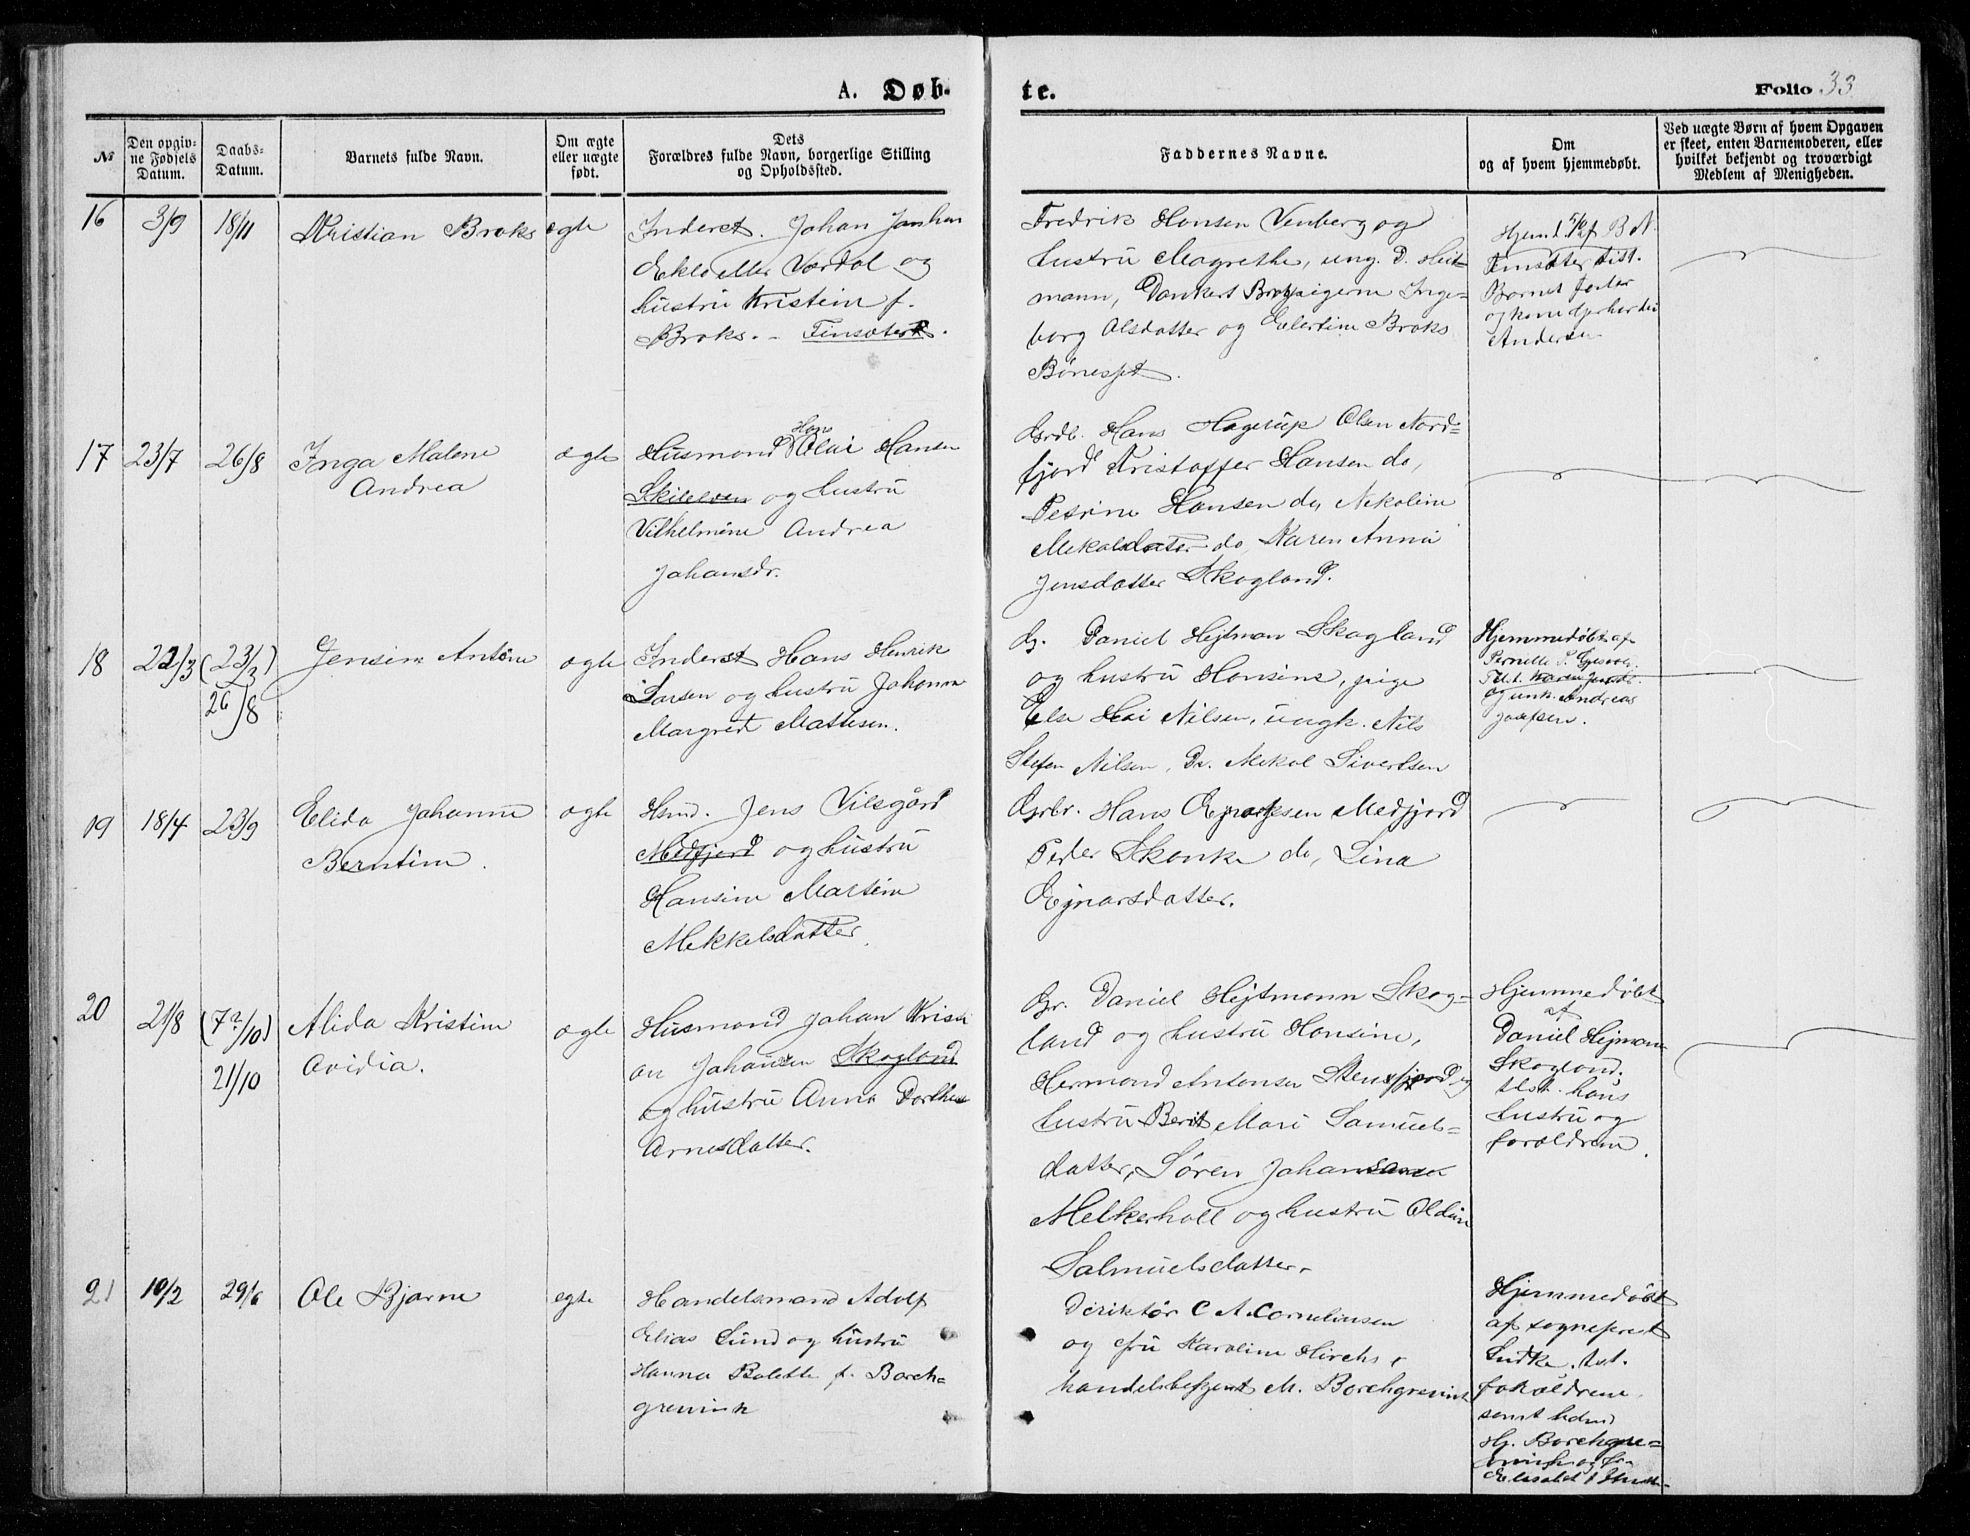 A. Døb-
te.
Folio 33
№
Den opgiv-
ne Fødsels
Datum.
Daabs-
Datum.
Barnets fulde Navn.
Om ægte
eller uægte
født.
Dets
Forældres fulde Navn, borgerlige Stilling
og Opholdssted.
Faddernes Navne.
Om
og af hvem hjemmedøbt.
Ved uægte Børn af hvem Opgaven
er skeet, enten Barnemoderen, eller
hvilket bekjendt og troværdigt
Medlem af Menigheden.
16
3/9
18/11
Kristian Broks
egte
Inderst. Johan
eller Værdal og
hustru Kristein f.
Broks. - Finsæter.
Fredrik Hansen Venberg og
hustru Magrethe, ung. D. Heit-
mann, Dankert Brox, pigerne Inge-
borg Olsdatter og Elertine Broks
Bøneset.
Hjemd. 5/9 af B N.
Finsæter tilst.
Barnets fader
og kone
Andersen
17
23/7
26/8
Inga Malene
Andrea
ægte
Husmand Hans Olai Hansen
Skilelven og hustru
Vilhelmine Andrea
Johansdr.
Grdb. Hans Hagerup Olsen Nord-
fjord Kristoffer Hansen do,
Petrine Hansen do, Nekoline
Mekalsdatter do, Karen Anna
Jensdatter Skogland.
18
22/3
(23/3)
26/8
Jensine Antone
ægte
Inderst Hans Henrik
Larsen og hustru Johanna
Margret Mathisen.
G. Daniel Hejtman Skogland
og hustru Hansine, pige
Else Hei Nilsen, ungk. Nils
Stefen Nilsen, Dr. Mekal Sivertsen
Hjemmedøbt af
Pernille P.
Tilst. Karen
og unk. Andreas
Josefsen.
19
18/4
23/9
Elida Johanne
Berntine.
ægte
Hsmd. Jens Vilsgård
Medfjord og hustru
Hansine Martine
Mekkelsdatter.
Grbr. Hans Ejnarsen Medfjord
Peder Skonke do, Lina
Ejnarsdatter.
20
21/8
(7?/10)
21/10
Alida Kristine
Ovidia.
ægte
Husmand Johan Kristi
an Johansen Skogland
og hustru Anna Dorthea
Arnesdatter.
Gr. Daniel Hejtmann Skog-
land og hustru Hansine,
Hermand Antonsen Stensfjord og
hustru Berit Mari Samuels-
datter, Søren Johansen
og hustru Oldine
Salmuelsdatter.
Hjemmedøbt
af
Daniel Hejman
Skogland.
tlst. hans
hustru og
foraldrene.
21
10/2
29/6
Ole Bjarne
egte
Handelsmand Adolf
Elias Lund og hustru
Hanna Bolette f. Borch-
grevink
Diriktør C A. Corneliusen
og fru Karoline Hirchs,
handelsbetjent M. Borchgrevink
Hjemmedøbt
af sogneprest
Ludke. tst.
foraldrene
samt
Hj. Borchgre-
vink og fr.